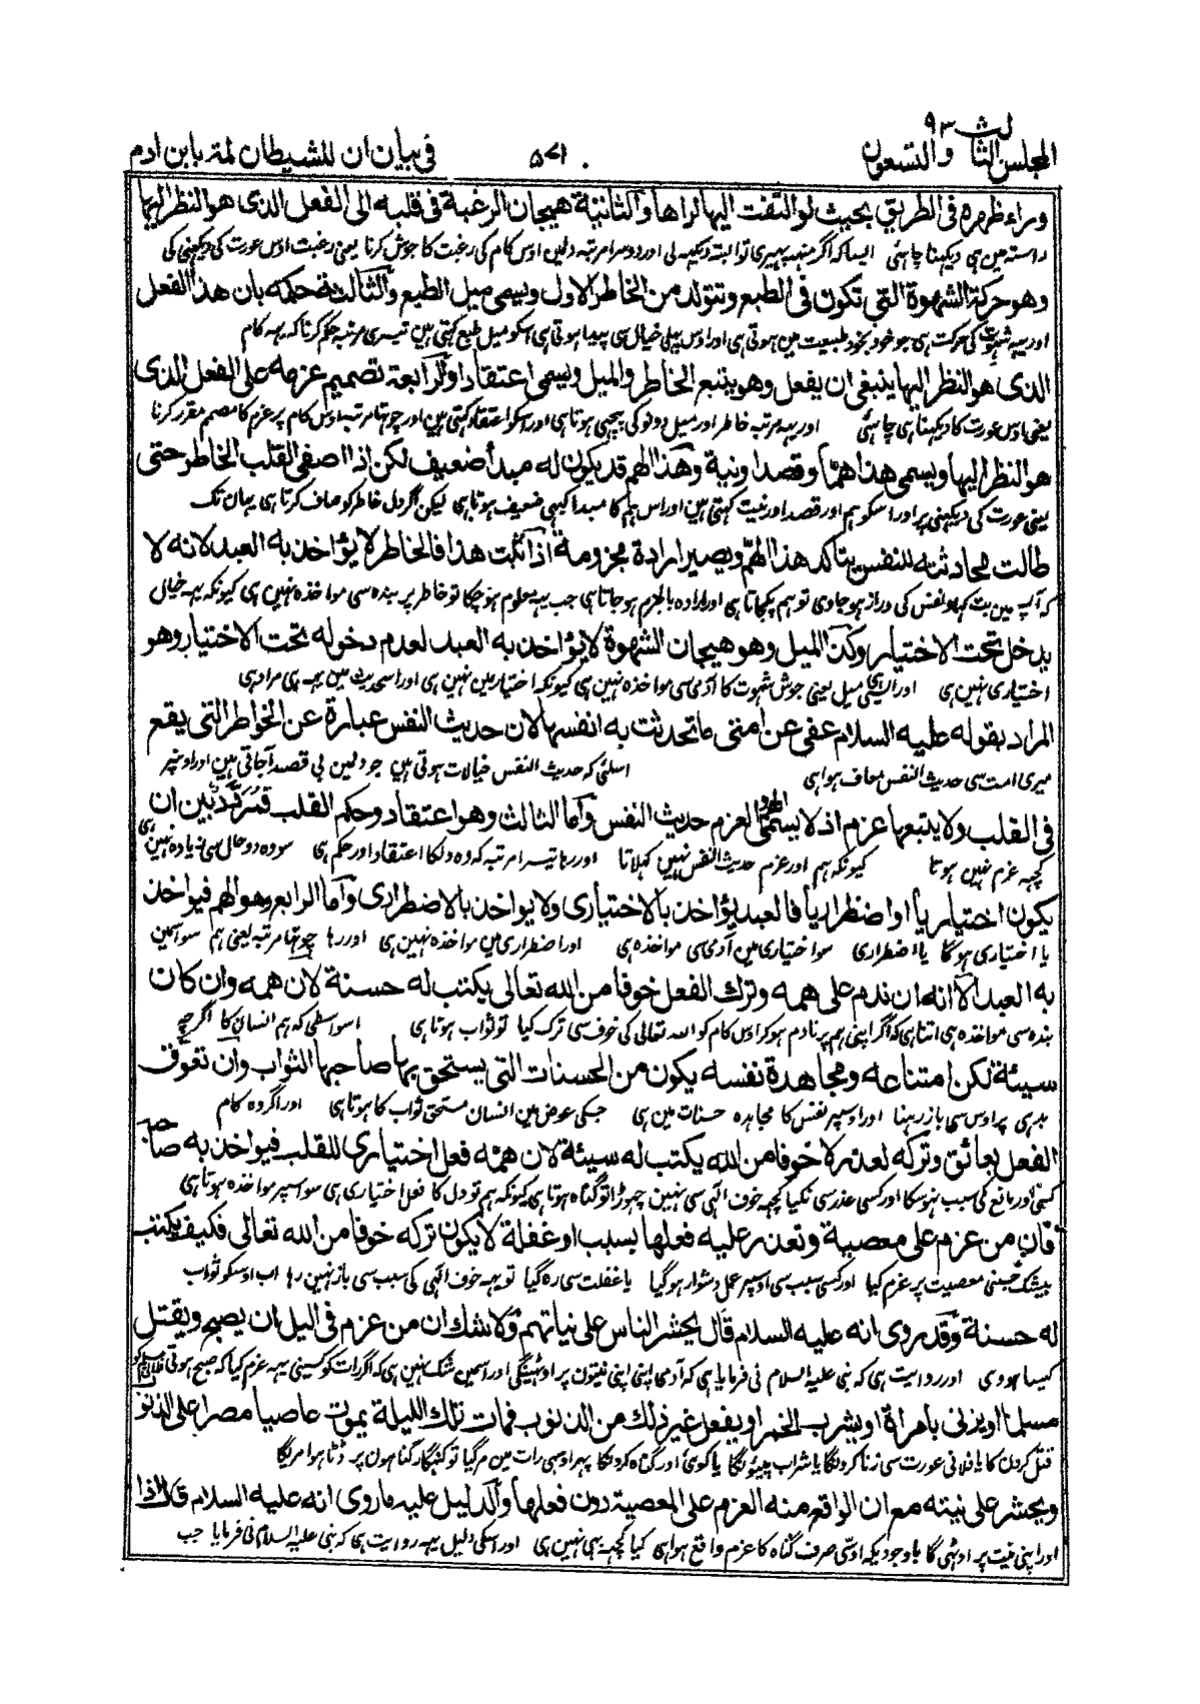 المجلس الثالث والتسعون ٩٣
٥٧١
فی بیان ان للشیطان لمۃ بابن ادم
وراء ظهره فی الطریق بحیث لو التفت الیها لراها والثانیة هیجان الرغبة فی قلبه الی الفعل الذی هو النظر الیها
راستہ مین ہی دیکہنا چاہئی ایسا کہ اگر منہہ پہیری تو البتہ دیکہہ لی اور دوسرا مرتبہ دلمین اوس کام کی رغبت کا جوش کرنا یعنی رغبت اوس عورت کی دیکہنی کی
وهو حرکة الشهوة التی تکون فی الطبع وتتولد من الخاطر الاول ویسمی میل الطبع والثالثة حکمه بان هذا الفعل
اور یہہ شہوت کی حرکت ہی جو خود بخود طبیعت مین ہوتی ہی اور اوس پہلی خیال سی پیدا ہوتی ہی اسکو میل طبع کہتی ہین تیسری مرتبہ حکم کرنا کہ یہہ کام
الذی هو النظر الیها ینبغی ان یفعل وهو یتبع الخاطر والمیل ویسمی اعتقادا والرابعة تصمیم عزمه علی الفعل الذی
یعنی اوس عورت کا دیکہنا ہی چاہئی اور یہہ مرتبہ خاطر اور میل دونو کی پیچہی ہوتا ہی اور اسکو اعتقاد کہتی ہین اور چوتہا مرتبہ اوس کام پر عزم کا مصمم مقرر کرنا
هو النظر الیها ویسمی هذا هما وقصدا ونیة وهذا الهم قد یکون له مبدأ ضعیف لکن اذا اصغی القلب الخاطر حتی
یعنی عورت کی دیکہنی پر اور اسکو ہم اور قصد اور نیت کہتی ہین اور اس ہم کا مبدا کبہی ضعیف ہوتا ہی لیکن اگر دل خاطر کو صاف کرتا ہی یہان تک
طالت محادثته للنفس یتاکد هذا الهم ویصیر ارادة مجزومة اذا ثبت هذا فالخاطر لا یؤاخذ به العبد لانه لا
کہ آپس مین بت کہاو نفس کی دراز ہو جاوی تو ہم پکجاتا ہی اور ارادہ بالجزم ہو جاتا ہی جب یہہ معلوم ہو چکا تو خاطر پر بندہ سی مواخذہ نہین ہی کیونکہ یہہ خیال
یدخل تحت الاختیار وکذا المیل وهو هیجان الشهوة لا یؤاخذ به العبد لعدم دخوله تحت الاختیار وهو
اختیاری نہین ہی اور ایسی ہی میل یعنی جوش شہوت کا آدمی سی مواخذہ نہین ہی کیونکہ اختیار مین نہین ہی اور اس حدیث مین یہہ ہی مراد ہی
المراد بقوله علیه السلام عفی عن امتی ما تحدثت به انفسها لان حدیث النفس عبارة عن الخواطر التی یقع
میری امت سی حدیث النفس معاف ہوا ہی اسلئی کہ حدیث النفس خیالات ہوتی ہین جو دلمین بی قصد آجاتی ہین اور اوسپر
فی القلب ولا یتبعها عزم اذ لا یسمی الهم والعزم حدیث النفس واما الثالث وهو اعتقاد وحکم القلب فمردد بین ان
کچہہ عزم نہین ہوتا کیونکہ ہم اور عزم حدیث النفس نہین کہلاتا اور رہا تیسرا مرتبہ کہ وہ دلکا اعتقاد اور حکم ہی سو وہ دو حال سی زیادہ نہین ہی
یکون اختیاریا او اضطراریا فالعبد یؤاخذ بالاختیاری ولا یواخذ بالاضطراری واما الرابع وهو الهم فیواخذ
یا اختیاری ہوگا یا اضطراری سو اختیاری مین آدمی سی مواخذہ ہی اور اضطراری مین مواخذہ نہین ہی اور رہا چوتہا مرتبہ یعنی ہم سو اسمین
به العبد الا انه ان ندم علی همه وترك الفعل خوفا من الله تعالی یکتب له حسنة لان همه وان کان
بندہ سی مواخذہ ہی اتنا ہی کہ اگر اپنی ہم پر نادم ہو کر اوس کام کو اللہ تعالی کی خوف سی ترک کیا تو ثواب ہوتا ہی اسواسطی کہ ہم انسان کا اگرچہ
سیئة لکن امتناعه ومجاهدة نفسه یکون من الحسنات التی یستحق بها صاحبها الثواب وان تعوق
بدی پر اوس سی باز رہنا اور اوسپر نفس کا مجاہدہ حسنات مین ہی جسکی عوض مین انسان مستحق ثواب کا ہوتا ہی اور اگر وہ کام
الفعل بعائق وترکه لعذر لا خوفا من الله یکتب له سیئة لان همه فعل اختیاری للقلب فیواخذ به صاحبه
کسی اور مانع کی سبب نہوسکا اور کسی عذر سی نکیا کچہہ خوف الہی سی نہین چہوڑا تو گناہ ہوتا ہی کیونکہ ہم تو دل کا فعل اختیاری ہی سو اسپر مواخذہ ہوتا ہی
فان من عزم علی معصیة وتعذر علیه فعلها بسبب او غفلة لا یکون ترکه خوفا من الله تعالی فکیف یکتب
بیشک جسنی معصیت پر عزم کیا اور کسی سبب سی اوسپر عمل دشوار ہوگیا یا غفلت سی رہ گیا تو یہہ خوف الہی کی سبب سی باز نہین رہا اب اوسکو ثواب
له حسنة وقد روی انه علیه السلام قال یحشر الناس علی نیاتهم ولا شك ان من عزم فی الیل ان یصبح ویقتل
کیسا ہووی اور روایت ہی کہ نبی علیہ السلام نی فرمایا ہی کہ آدمی اپنی اپنی نیتون پر اوٹہینگی اور اسمین شک نہین ہی کہ اگر رات کو کسینی یہہ عزم کیا کہ صبح ہوتی فلانی مسلم کو
مسلما او یزنی بامرأة او یشرب الخمر او یفعل غیر ذلك من الذنوب فمات تلك اللیلة یموت عاصیا مصرا علی الذنو
قتل کردن کا یا فلانی عورت سی زنا کرونگا یا شراب پیئونگا یا کوئی اور گناہ کرونگا پہر اوسی رات مین مر گیا تو گنہگار گناہون پر ڈٹا ہوا مریگا
ویحشر علی نیته مع ان الواقع منه العزم علی المعصیة دون فعلها والدلیل علیه ما روی انه علیه السلام قال اذا
اور اپنی نیت پر اوٹہی گا باوجودیکہ اوسی صرف گناہ کا عزم واقع ہوا ہی کیا کچہہ بہی نہین ہی اور اسکی دلیل یہہ روایت ہی کہ نبی علیہ السلام نی فرمایا جب